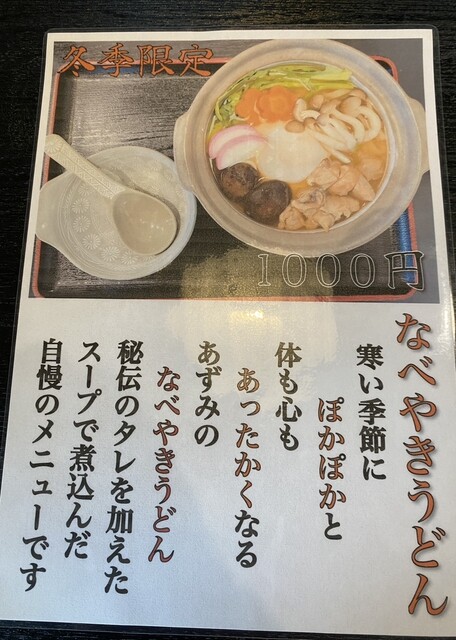 冬季限定
1000円
なべやきうどん
寒い季節に
ぽかぽかと
体も心も
あったかくなる
あずみの
なべやきうどん
秘伝のタレを加えた
スープで煮込んだ
自慢のメニューです